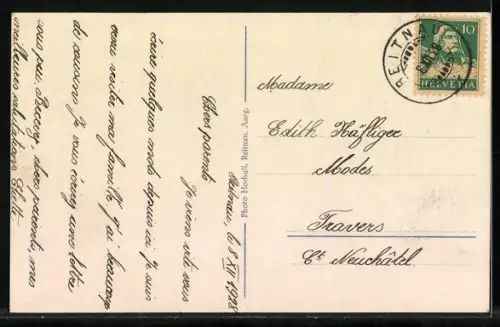 Reitnau, le 8 XII 1928
Chers parents
Je viens vite vous
écrire quelques mots depuis ici je suis
venu visiter ma famille j'ai beaucoup
de Je vous écrirez une lettre
sous peu. Recevez, chers parents, mes
meilleures salutations
Photo Hochuli, Reitnau, Aarg.
REITNAU
10
HELVETIA
Madame
Edith Häfliger
Modes
Travers
Ct Neuchâtel